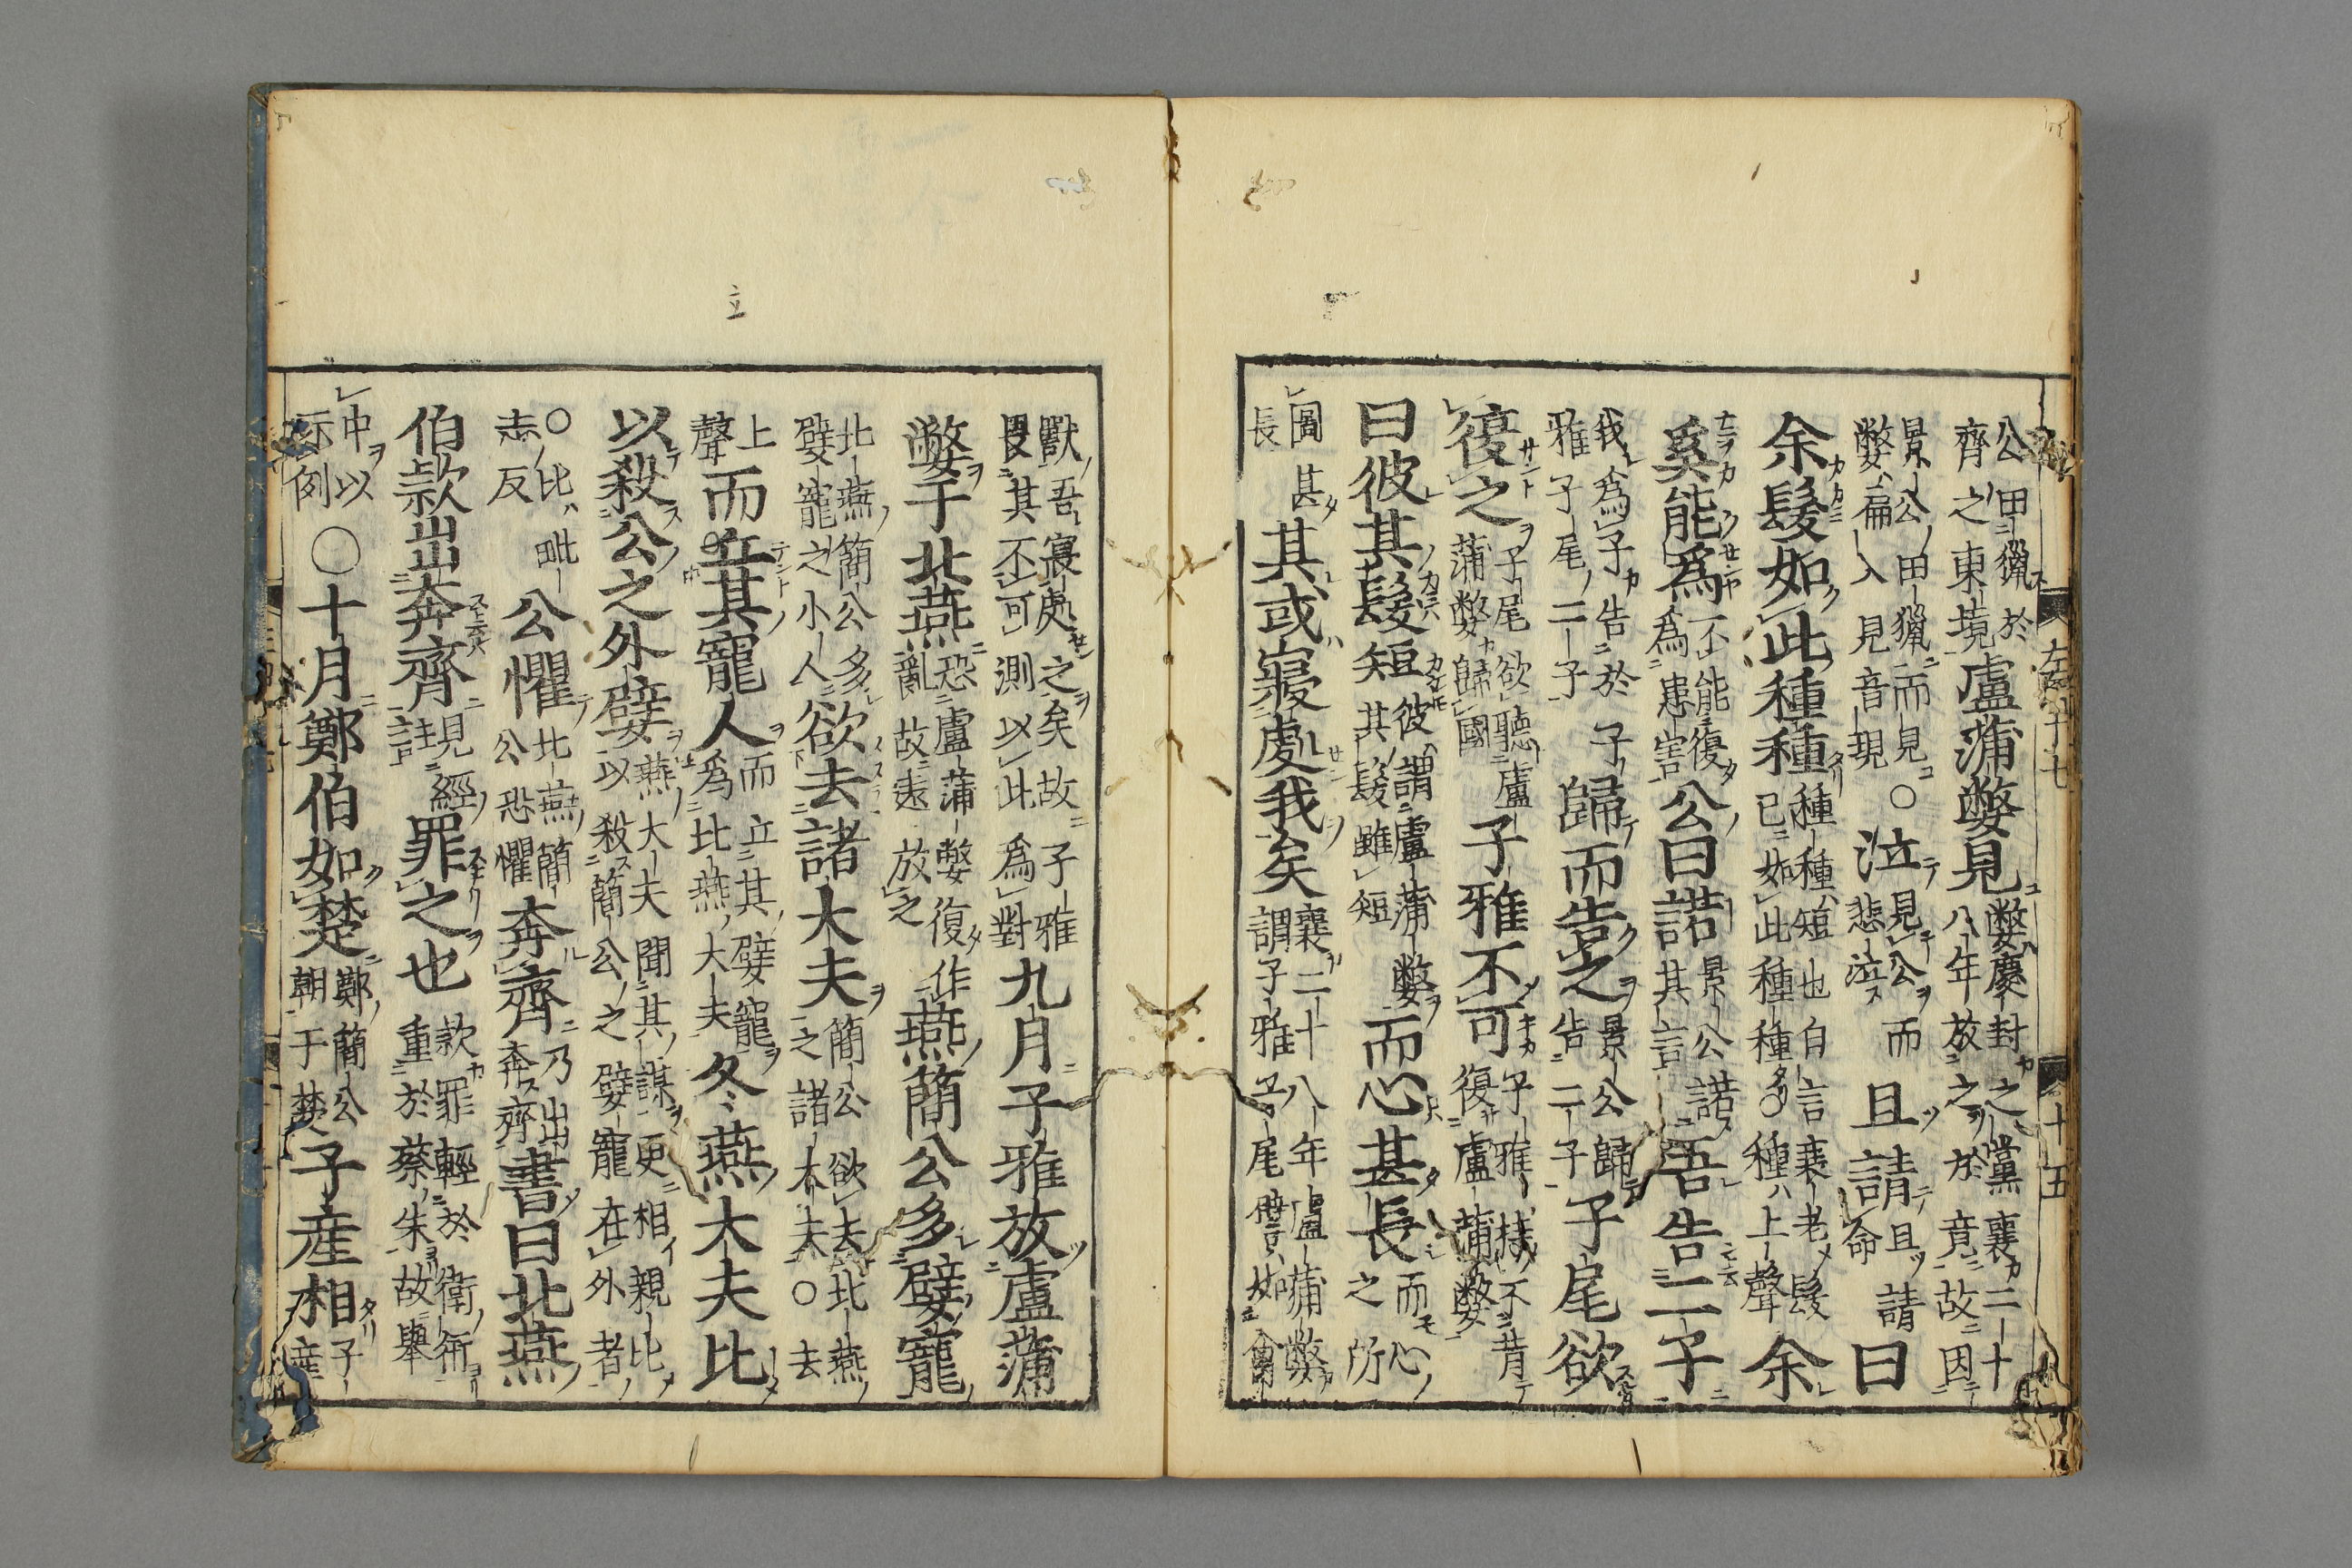 左傳十七 十五
公田獵於齊之東境盧蒲嫳見嫳慶封之黨襄二十八年放之於竟故因
景公田獵而見○嫳扁入見音現泣見公而悲泣且請且請命曰
余髮如此種種種種短也自言衰老髮已如此種種○種上聲余
奚能爲不能復爲患害公曰諾景公諾其言吾告二子
我爲子告於子雅子尾二子歸而告之景公歸告二子子尾欲
復之子尾欲聽盧蒲嫳歸國子雅不可子雅不肯復盧蒲嫳
曰彼其髮短彼謂盧蒲嫳其髮雖短而心甚長而心之所
圖甚長其或寢處我矣襄二十八年盧蒲嫳謂子雅子尾譬如禽
獸吾寢處之矣故子雅畏其不可測以此爲對九月子雅放盧蒲
嫳于北燕恐盧蒲嫳復作亂故遠放之燕簡公多嬖寵
北燕簡公多嬖寵之小人欲去諸大夫簡公欲去北燕之諸大夫○去
上聲而立其寵人而立其嬖寵爲北燕大夫冬燕大夫比
以殺公之外嬖燕大夫聞其謀更相親比以殺簡公之嬖寵在外者
○比毗志反公懼北燕簡公恐懼奔齊乃出奔齊書曰北燕
伯款出奔齊見經註罪之也款罪輕於衛衎重於蔡朱故舉
中以示例○十月鄭伯如楚鄭簡公朝于楚子産相子産
立